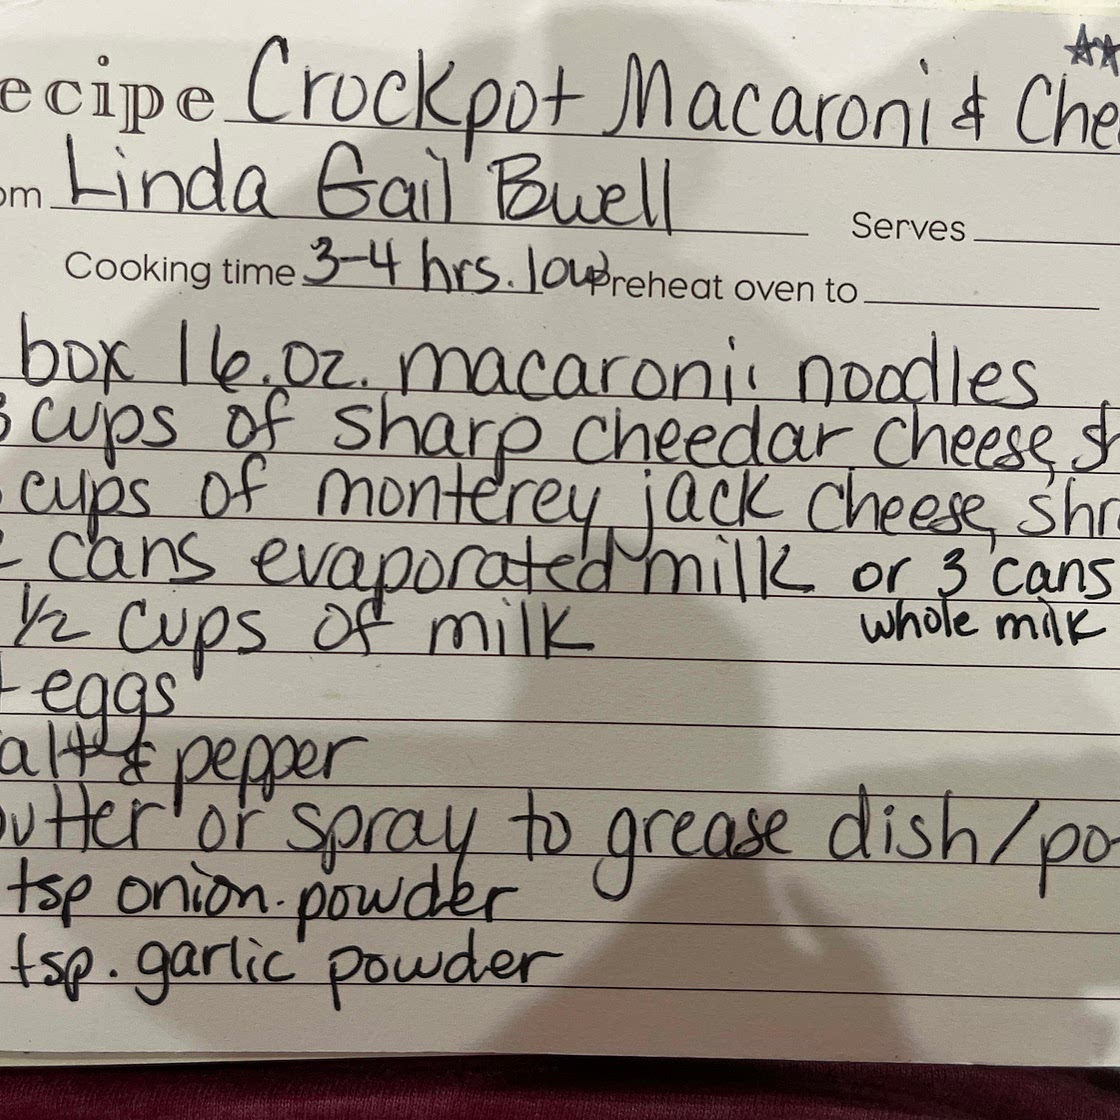 ecipe Crockpot Macaroni & Che
om Linda Gail Bowell Serves
Cooking time 3-4 hrs. low Preheat oven to
box 16.oz. macaroni noodles
3 cups of sharp cheedar cheese, sh
cups of monterey jack cheese, shr
cans evaporated milk or 3 cans
1/2 cups of milk whole milk
eggs
alt & pepper
butter or spray to grease dish/po
tsp onion powder
tsp. garlic powder